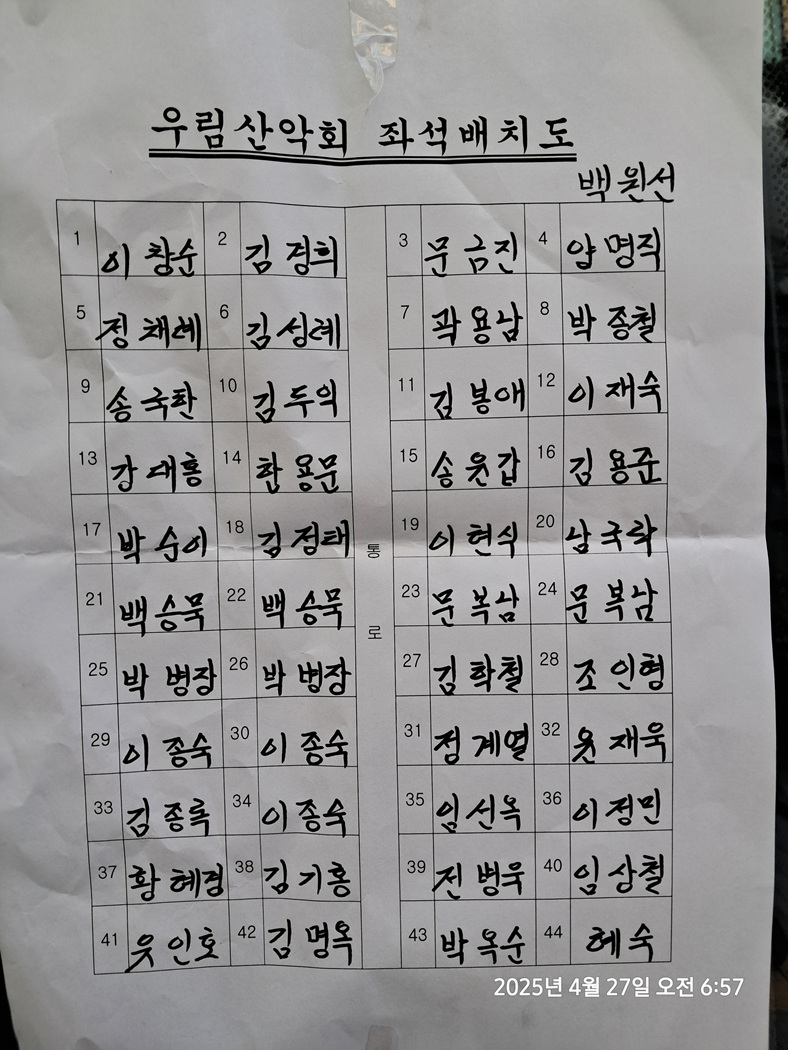 우림산악회 좌석배치도
백원선
1 이창순 2 김경희 3 문금진 4 양명직
5 정채례 6 김성례 7 곽용남 8 박종철
9 송국환 10 김두익 11 김봉애 12 이재숙
13 강대흥 14 한용문 15 송윤갑 16 김용준
17 박순이 18 김정태 19 이현식 20 남국락
통
21 백승묵 22 백승묵 23 문복남 24 문복남
로
25 박병장 26 박병장 27 김학철 28 조인형
29 이종숙 30 이종숙 31 정계열 32 윤재욱
33 김종록 34 이종숙 35 임선옥 36 이정민
37 황혜경 38 김기홍 39 진병욱 40 임상철
41 윤인호 42 김명옥 43 박옥순 44 혜숙
2025년 4월 27일 오전 6:57